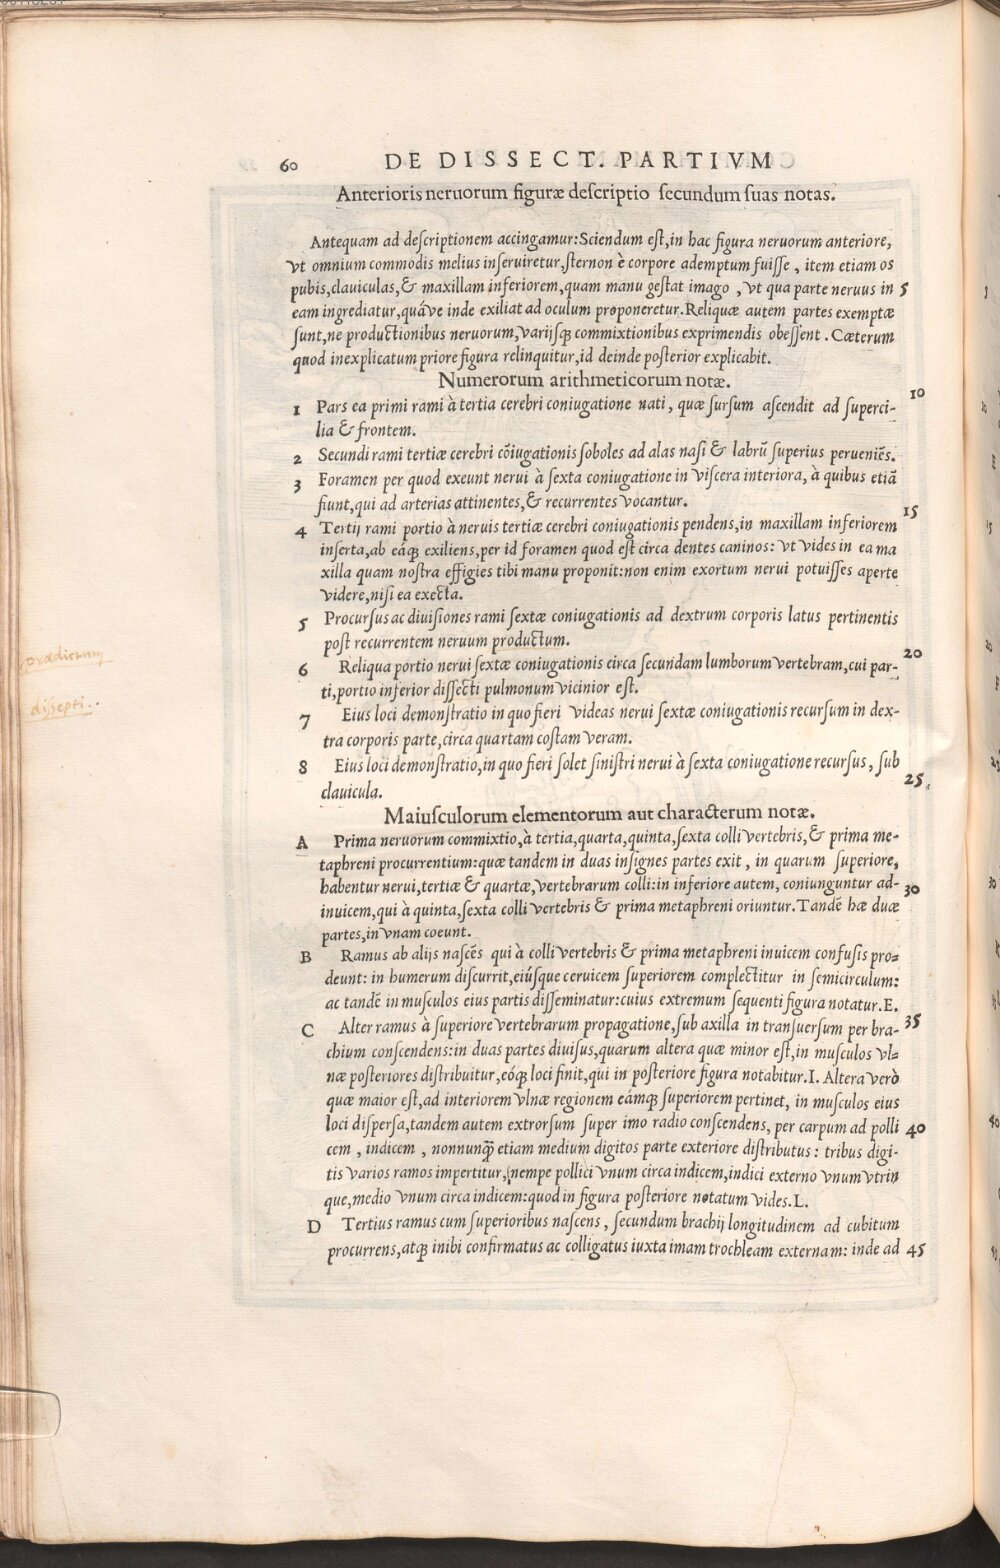 60 DE DISSECT. PARTIVM
Anterioris neruorum figuræ deſcriptio ſecundum ſuas notas.
Antequam ad deſcriptionem accingamur: Sciendum eſt, in hac figura neruorum anteriore,
vt omnium commodis melius inſeruiretur, ſternon è corpore ademptum fuiſſe, item etiam os
pubis, clauiculas, & maxillam inferiorem, quam manu geſtat imago, vt qua parte neruus in 5
eam ingrediatur, quáve inde exiliat ad oculum proponeretur. Reliquæ autem partes exemptæ
ſunt, ne productionibus neruorum, variiſq́; commixtionibus exprimendis obeſſent. Cæterum
quod inexplicatum priore figura relinquitur, id deinde poſterior explicabit.
Numerorum arithmeticorum notæ.
10
1 Pars ea primi rami à tertia cerebri coniugatione nati, quæ ſurſum aſcendit ad ſuperci-
lia & frontem.
2 Secundi rami tertiæ cerebri cõiugationis ſoboles ad alas naſi & labrũ ſuperius perueniẽs.
3 Foramen per quod exeunt nerui à ſexta coniugatione in viſcera interiora, à quibus etiã
fiunt, qui ad arterias attinentes, & recurrentes vocantur.
15
4 Tertij rami portio à neruis tertiæ cerebri coniugationis pendens, in maxillam inferiorem
inſerta, ab eáq́; exiliens, per id foramen quod eſt circa dentes caninos: vt vides in ea ma
xilla quam noſtra effigies tibi manu proponit: non enim exortum nerui potuiſſes aperte
videre, niſi ea execta.
5 Procurſus ac diuiſiones rami ſextæ coniugationis ad dextrum corporis latus pertinentis
poſt recurrentem neruum productum.
20
prædictum
6 Reliqua portio nerui ſextæ coniugationis circa ſecundam lumborum vertebram, cui par-
ti, portio inferior diſſecti pulmonum vicinior eſt.
diſsepti.
7 Eius loci demonſtratio in quo fieri videas nerui ſextæ coniugationis recurſum in dex-
tra corporis parte, circa quartam coſtam veram.
8 Eius loci demonſtratio, in quo fieri ſolet ſiniſtri nerui à ſexta coniugatione recurſus, ſub
clauicula. 25
Maiuſculorum elementorum aut characterum notæ.
A Prima neruorum commixtio, à tertia, quarta, quinta, ſexta colli vertebris, & prima me-
taphreni procurrentium: quæ tandem in duas inſignes partes exit, in quarum ſuperiore,
habentur nerui, tertiæ & quartæ, vertebrarum colli: in inferiore autem, coniunguntur ad- 30
inuicem, qui à quinta, ſexta colli vertebris & prima metaphreni oriuntur. Tandẽ hæ duæ
partes, in vnam coeunt.
B Ramus ab alijs naſcẽs qui à colli vertebris & prima metaphreni inuicem confuſis pro-
deunt: in humerum diſcurrit, eiúſque ceruicem ſuperiorem complectitur in ſemicirculum:
ac tandẽ in muſculos eius partis diſſeminatur: cuius extremum ſequenti figura notatur. E.
35
C Alter ramus à ſuperiore vertebrarum propagatione, ſub axilla in tranſuerſum per bra-
chium conſcendens: in duas partes diuiſus, quarum altera quæ minor eſt, in muſculos vl-
næ poſteriores diſtribuitur, eóq́; loci finit, qui in poſteriore figura notabitur. I. Altera verò
quæ maior eſt, ad interiorem vlnæ regionem eámq́; ſuperiorem pertinet, in muſculos eius
loci diſperſa, tandem autem extrorſum ſuper imo radio conſcendens, per carpum ad polli 40
cem, indicem, nonnunq̃ etiam medium digitos parte exteriore diſtributus: tribus digi-
tis varios ramos impertitur, nempe pollici vnum circa indicem, indici externo vnum vtrin
que, medio vnum circa indicem: quod in figura poſteriore notatum vides. L.
D Tertius ramus cum ſuperioribus naſcens, ſecundum brachij longitudinem ad cubitum
procurrens, atq́; inibi confirmatus ac colligatus iuxta imam trochleam externam: inde ad 45